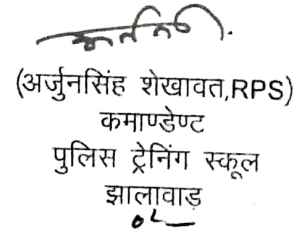 (अर्जुनसिंह शेखावत,RPS)
कमाण्डेण्ट
पुलिस ट्रेनिंग स्कूल
झालावाड़